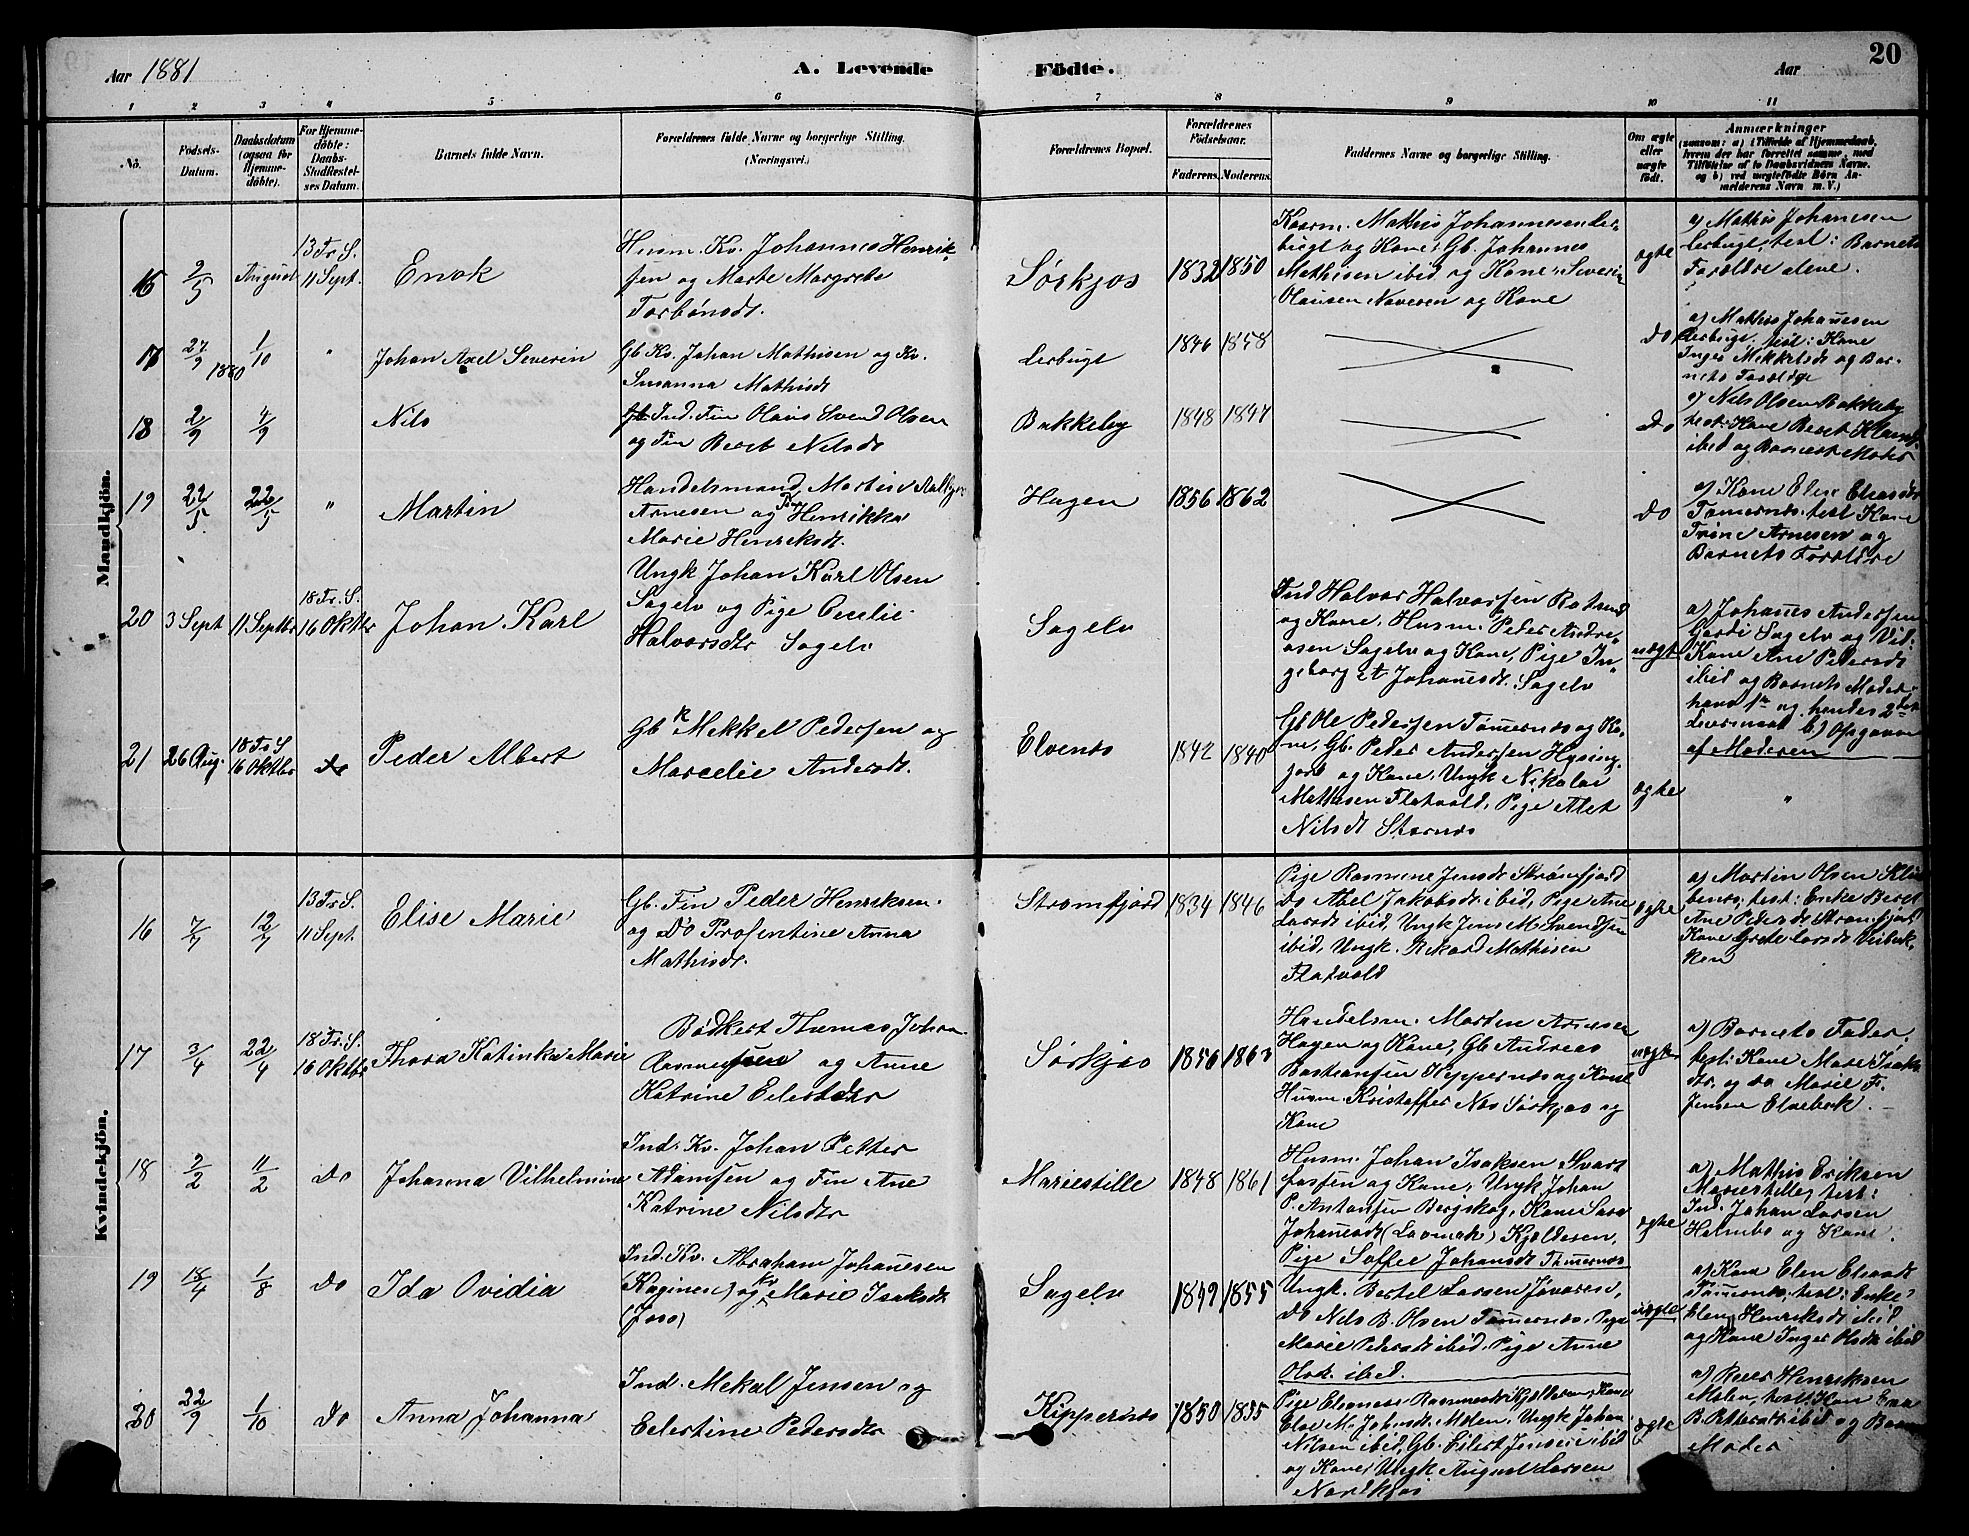 Aar 1881
A. Levende
Födte.
Aar
20
1 2 3 4 5 6 7 8 9 10 11
No.
Födsels-
Datum.
Daabsdatum
(ogsaa for
Hjemme-
döbte).
For Hjemme-
döbte:
Daabs-
Stadfæstel-
ses Datum.
Barnets fulde Navn.
Forældrenes fulde Navne og borgerlige Stilling.
(Næringsvei.)
Forældrenes Bopæl.
Forældrenes
Födselsaar.
Faderens. Moderens.
Faddernes Navne og borgerlige Stilling.
Om ægte
eller
uægte
födt.
Anmærkninger
(saasom: a) i Tilfælde af Hjemmedaab,
hvem der har forrettet samme, med
Tilföielse af to Daabsvidners Navne.
og b) ved uægtefödte Börn An-
melderens Navn m. V.)
Mandkjön.
16
9/5
August
13 Tr. S.
11 Sept.
Enok
Husm. Kv. Johannes Henrik-
sen og Marte Margrete
Torbønsdt.
Sørkjos
1832 1850
Mathis Johannesen Ler-
bugt og Kone, Gb. Johannes
Mathisen ibid og Kone, Severin
Olausen Naveren og Kone
ægte
a) Mathis Johanesen
Lerbugt, test: Barnets
Forældre alene.
17
27/9 1880
1/10
"
Johan Axel Severin
Gb Kv. Johan Mathisen og Kv.
Susanna Mathisdt
Lerbugt
1846 1858
do
a) Mathis Johanesen
Lerbugt, test: Kone
Inger Mikkelsdt og Bar-
nets Forældre
18
2/9
4/9
"
Nils
Ind. Fin Olaus Svend Olsen
og Fin Beret Nilsdt
Bakkeby
1848 1847
do
a) Nils Olsen Bakkeby
test: Kone Beret
ibid og Barnets Moder
19
22/5
22/5
"
Martin
Handelsmand Martin
Arnesen og Henrikka
Marie Henriksdt.
Hagen
1856 1862
do
a) Kone Elen Eliasdt
Tømernes, test Kone
Trine Arnesen og
Barnets Forældre
20
3 Sept
11 Septbr
18 Tr. S.
16 Oktbr
Johan Karl
Ungk Johan Karl Olsen
Sagelv og Pige Cecilie
Halvorsdtr Sagelv
Sagelv
Ind Halvor Halvorsen Rotsund
og Kone, Husm. Peder Andre-
asen Sagelv og Kone, Pige In-
geborg A. Johanesdt. Sagelv
uægte
a) Johanes Andersen
Sagelv og
Kone Ane Pedersdt
ibid og Barnets Moder
hans 1ste og hendes 2det
Leiermaal b) Opgaven
af Moderen
21
26 Aug.
18 Tr S
16 Oktbr
do
Peder Albert
Gb Mekkel Pedersen og
Marcelie Andersdt.
Elvenes
1842 1840
Gb Ole Pedersen Tømernes og Ko-
ne, Gb. Peder Andersen Hysing-
jord og Kone, Ungk Nikolai
Mathisen Flatvold, Pige Alet
Nilsdt Stornes
ægte
"
Kvindekjön.
16
7/7
12/7
13 Tr S.
11 Sept.
Elise Marie
Gb. Fin Peder Henriksen
og do Profentine Anna
Mathisdt.
Strømfjord
1834 1846
Pige Rasmine Jensdt Strømfjord
do Abel Jakobsdt ibid, Pige Ane
Larsdt ibid, Ungk Jens M. Svendsen
ibid, Ungk. Rikard Mathisen
Flatvold
ægte
a) Martin Olsen
test: Enke Beret
Ane Pedersdt Strømfjord
Kone Grete Larsdt
17
3/4
22/4
18 Tr. S.
16 Oktbr
Thora Katinka Marie
Bødker Thomas Johan
og Anne
Katrine Eilertsdtr
Sørkjos
1856 1863
Handelsm. Martin Arnesen
Hagen og Kone, Gb Andreas
Bastiansen Kippernes og Kone
Husm. Kristoffer Nes Sørkjos og
Kone
uægte
a) Barnets Fader.
test: Kone Mare Isaks-
dtr. og do Marie F.
Jensen Elvebak.
18
9/2
11/2
do
Johanna Vilhelmine
Ind. Kv. Johan Petter
Adamsen og Fin Ane
Katrine Nilsdtr
Mariestille
1848 1861
Husm. Johan Isaksen Svart
fossen og Kone, Ungk Johan
P. Antonsen Bergskog, Kone Sara
Johanesdt (Lavmak) Kjældesen,
Pige Soffie Johansdt Tømernes
ægte
a) Mathis Eriksen
Mariestille, test:
Ind. Johan Larsen
Holmbo og Kone.
19
18/4
1/8
do
Ida Ovidia
Ind. Kv. Abraham Johanesen
(Kaginen) og Kv Marie Isaksdt
Sagelv
1849 1855
Ungk. Bertel Larsen
do Nils B. Olsen Tømernes, Pige
Marie Pedersdt ibid, Pige Anne
Olsdt. ibid.
uægte
a) Kone Elen Eliasdt
Tømernes, test: Enke
Elen Henriksdt ibid
og Kone Inger Olsdt ibid
20
22/9
1/10
do
Anna Johanna
Ind. Mekal Jensen og
Eelestine Pedersdtr
Kippernes
1850 1855
Pige Eleanore Rasmusdt Kjelleren, Kone
Else M. Johansdt Molen, Ungk Johan
Nilsen ibid, Gb. Eilert Jensen ibid
og Kone, Ungk August Larsen
Nordkjos
ægte
a) Peder Henriksen
Molen, test:
ibid og Barnets
Moder